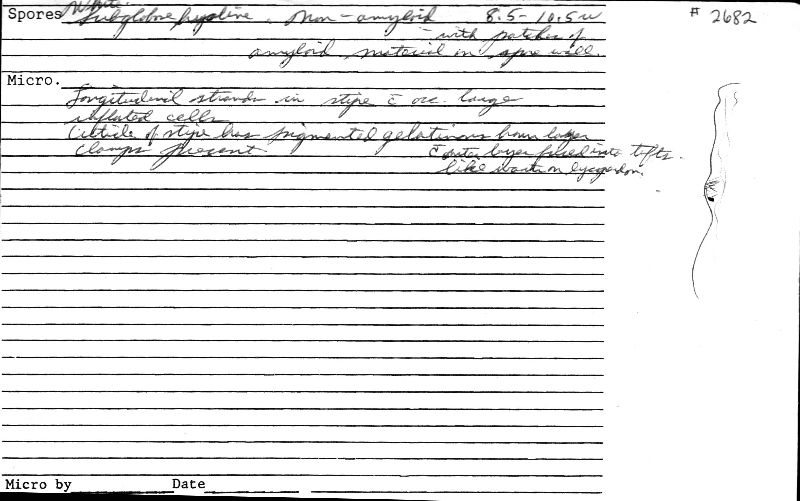 # 2682
White
Spores Subglobose hyaline, Non-amyloid 8.5-10.5u
- with patches of
amyloid material on spore wall.
Micro.
Longitudinal strands in stipe c̄ occ. large
inflated cells
Cuticle of stipe has pigmented gelatinous layer
Clamps present c̄ outer layer into tufts.
like warts on lycoperdon.
Micro by Date